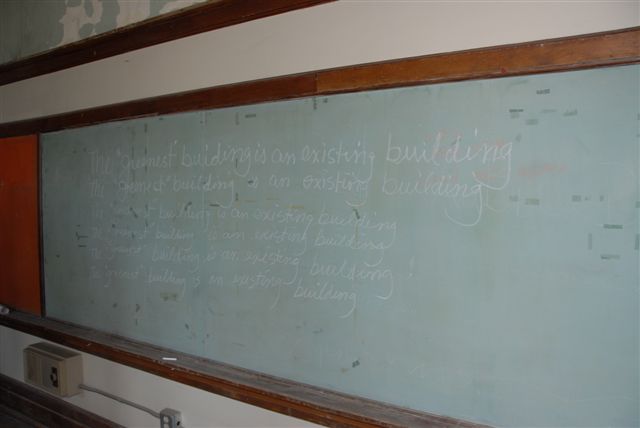 The "greenest" building is an existing building
The "greenest" building is an existing building
The "greenest" building is an existing building
The "greenest" building is an existing building
The "greenest" building is an existing building!
The "greenest" building is an existing building